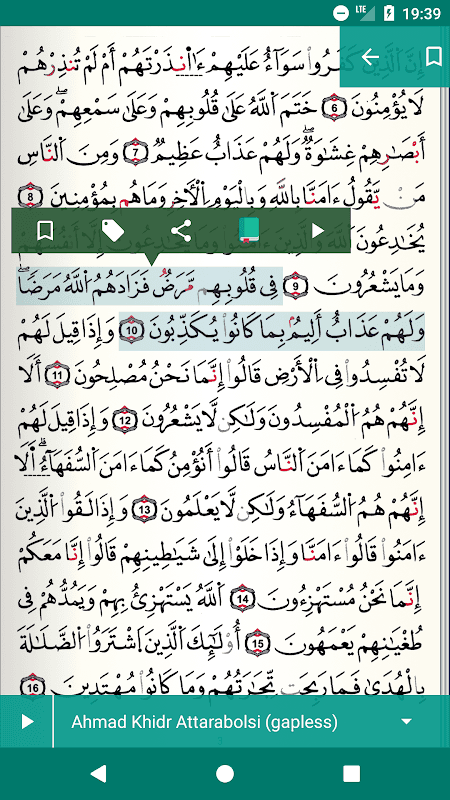 19:39
LTE
إِنَّ اَ۬لَّذِينَ كَفَرُواْ سَوَآءٌ عَلَيْهِمْ ءَا۬نذَرْتَهُمْ أَمْ لَمْ تُنذِرْهُمْ
لَا يُؤْمِنُونَ 6 خَتَمَ اَ۬للَّهُ عَلَىٰ قُلُوبِهِمْ وَعَلَىٰ سَمْعِهِمْ وَعَلَىٰ
أَبْصَٰرِهِمْ غِشَٰوَةٌ وَلَهُمْ عَذَابٌ عَظِيمٌ 7 وَمِنَ اَ۬لنَّاسِ
مَنْ يَّقُولُ ءَامَنَّا بِاللَّهِ وَبِالْيَوْمِ اِ۬لْأٓخِرِ وَمَا هُم بِمُؤْمِنِينَ 8
يُخَٰدِعُونَ اَ۬للَّهَ وَالَّذِينَ ءَامَنُواْ وَمَا يُخَٰدِعُونَ إِلَّا أَنفُسَهُمْ
وَمَا يَشْعُرُونَ 9 فِى قُلُوبِهِم مَّرَضٌ فَزَادَهُمُ اُ۬للَّهُ مَرَضًا
وَلَهُمْ عَذَابٌ أَلِيمٌ بِمَا كَانُواْ يُكَذِّبُونَ 10 وَإِذَا قِيلَ لَهُمْ
لَا تُفْسِدُواْ فِى اِ۬لْأَرْضِ قَالُواْ إِنَّمَا نَحْنُ مُصْلِحُونَ 11 أَلَا
إِنَّهُمْ هُمُ اُ۬لْمُفْسِدُونَ وَلَٰكِن لَّا يَشْعُرُونَ 12 وَإِذَا قِيلَ لَهُمْ
ءَامِنُواْ كَمَا ءَامَنَ اَ۬لنَّاسُ قَالُواْ أَنُؤْمِنُ كَمَا ءَامَنَ اَ۬لسُّفَهَآءُ أَلَا
إِنَّهُمْ هُمُ اُ۬لسُّفَهَآءُ وَلَٰكِن لَّا يَعْلَمُونَ 13 وَإِذَا لَقُواْ اُ۬لَّذِينَ
ءَامَنُواْ قَالُواْ ءَامَنَّا وَإِذَا خَلَوْاْ إِلَىٰ شَيَٰطِينِهِمْ قَالُواْ إِنَّا مَعَكُمْ
إِنَّمَا نَحْنُ مُسْتَهْزِءُونَ 14 اَ۬للَّهُ يَسْتَهْزِئُ بِهِمْ وَيَمُدُّهُمْ فِى
طُغْيَٰنِهِمْ يَعْمَهُونَ 15 أُوْلَٰٓئِكَ اَ۬لَّذِينَ اَ۪شْتَرَوُاْ اُ۬لضَّلَٰلَةَ
بِالْهُدَىٰ فَمَا رَبِحَت تِّجَٰرَتُهُمْ وَمَا كَانُواْ مُهْتَدِينَ 16
Ahmad Khidr Attarabolsi (gapless)